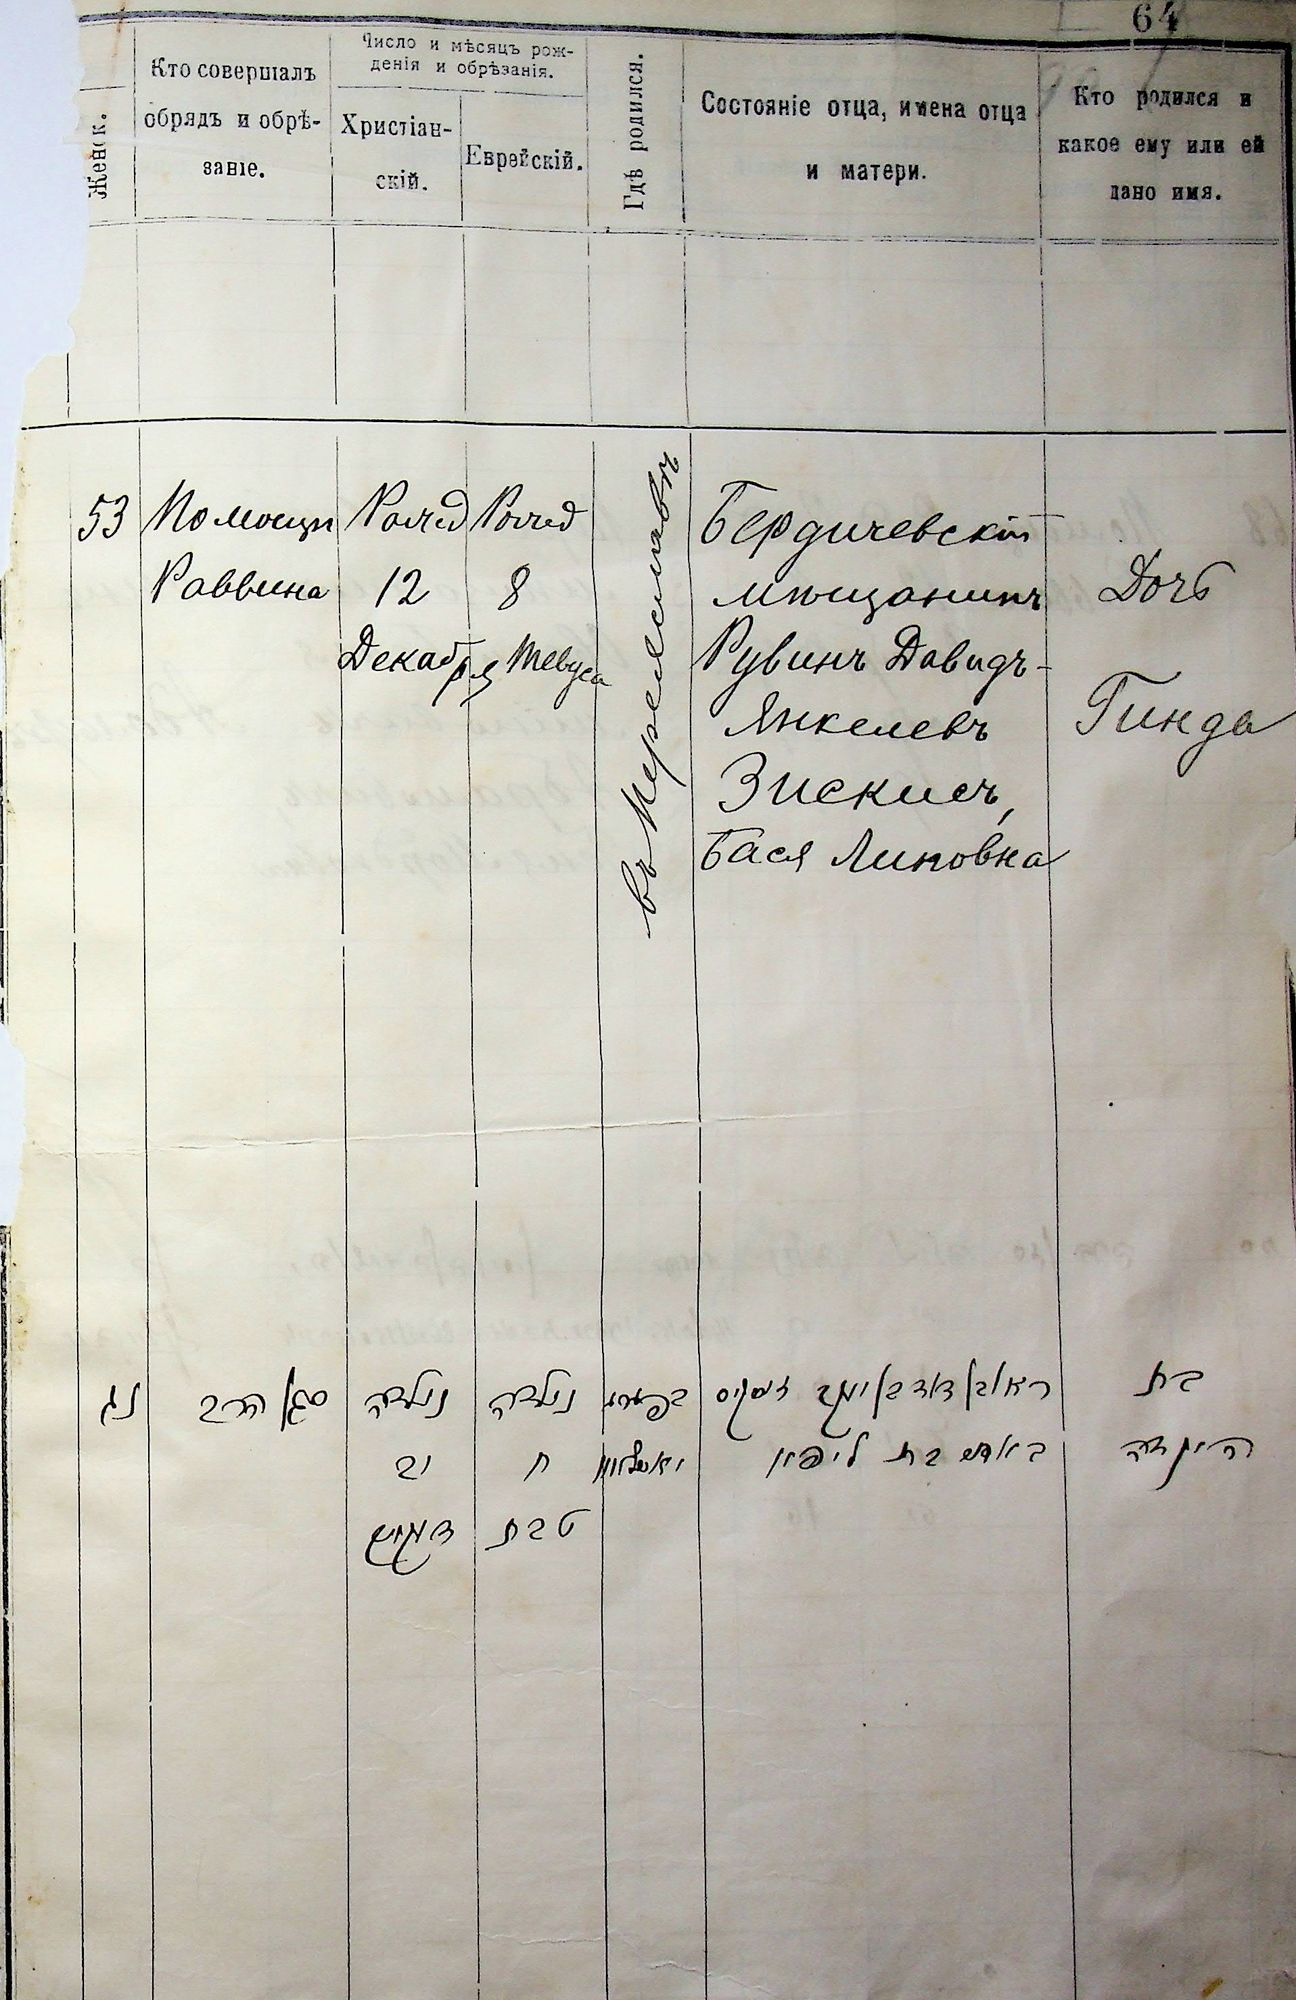 64
Женск.
Кто совершалъ
обрядъ и обрѣ-
заніе.
Число и мѣсяцъ рож-
денія и обрѣзанія.
Христіан-
скій.
Еврейскій.
Гдѣ родился.
Состояніе отца, имена отца
и матери.
Кто родился и
какое ему или ей
дано имя.
53
Помощн
Раввина
Рожд
12
Декабря
Рожд
8
Тевуса
въ Переяславѣ
Бердичевскій
мѣщанинъ
Рувинъ Давидъ-
Янкелевъ
Зискисъ,
Бася Липовна
Дочь
Гинда
נג
סגן הרב
נולדה
יב
נולדה
ח
טבת
ראובן דוד בן יעקב זיסקיס
באסע בת ליפין
בת
הינדה